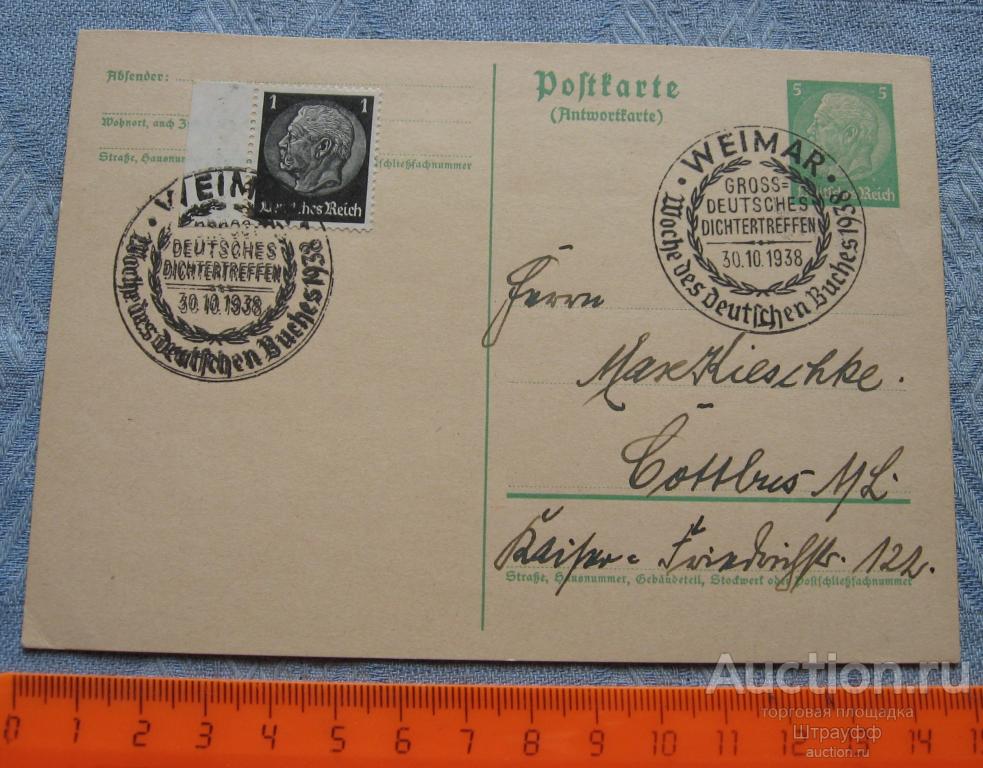 Absender:
Wohnort, auch
Straße, Hausnum
schließfachnummer
1 1
Deutsches Reich
WEIMAR
DEUTSCHES
DICHTERTREFFEN
30.10.1938
Woche des Deutschen Buches 1938
Postkarte
(Antwortkarte)
5 5
Deutsches Reich
· WEIMAR ·
GROSS=
DEUTSCHES
DICHTERTREFFEN
30.10.1938
Woche des Deutschen Buches 1938
Herrn
Max Kieschke.
Cottbus N/L.
Kaiser-Friedrichstr. 122.
Straße, Hausnummer, Gebäudeteil, Stockwerk oder Postschließfachnummer
Auction.ru
торговая площадка
Штрауфф
auction.ru
0 1 2 3 4 5 6 7 8 9 10 11 12 13 14 15